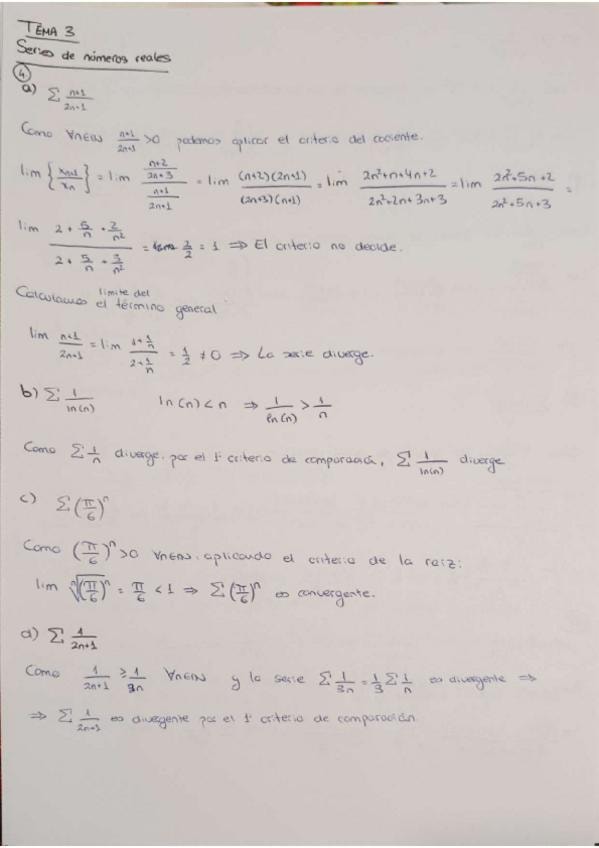 TEMA 3
Series de números reales
4
a) Σ (n+1)/(2n+1)
Como ∀n∈ℕ (n+1)/(2n+1) > 0 podemos aplicar el criterio del cociente.
lim {x_{n+1}/x_n} = lim ((n+2)/(2n+3))/((n+1)/(2n+1)) = lim ((n+2)(2n+1))/((2n+3)(n+1)) = lim (2n²+n+4n+2)/(2n²+2n+3n+3) = lim (2n²+5n+2)/(2n²+5n+3) =
lim (2 + 5/n + 2/n²)/(2 + 5/n + 3/n²) = 2/2 = 1 ⇒ El criterio no decide.
Calculamos el límite del término general
lim (n+1)/(2n+1) = lim (1+1/n)/(2+1/n) = 1/2 ≠ 0 ⇒ La serie diverge.
b) Σ 1/ln(n) ln(n) < n ⇒ 1/ln(n) > 1/n
Como Σ 1/n diverge, por el 1º criterio de comparación, Σ 1/ln(n) diverge
c) Σ (π/6)ⁿ
Como (π/6)ⁿ > 0 ∀n∈ℕ, aplicando el criterio de la raíz:
lim ⁿ√((π/6)ⁿ) = π/6 < 1 ⇒ Σ (π/6)ⁿ es convergente.
d) Σ 1/(2n+1)
Como 1/(2n+1) ≥ 1/3n ∀n∈ℕ y la serie Σ 1/3n = 1/3 Σ 1/n es divergente ⇒
⇒ Σ 1/(2n+1) es divergente por el 1º criterio de comparación.